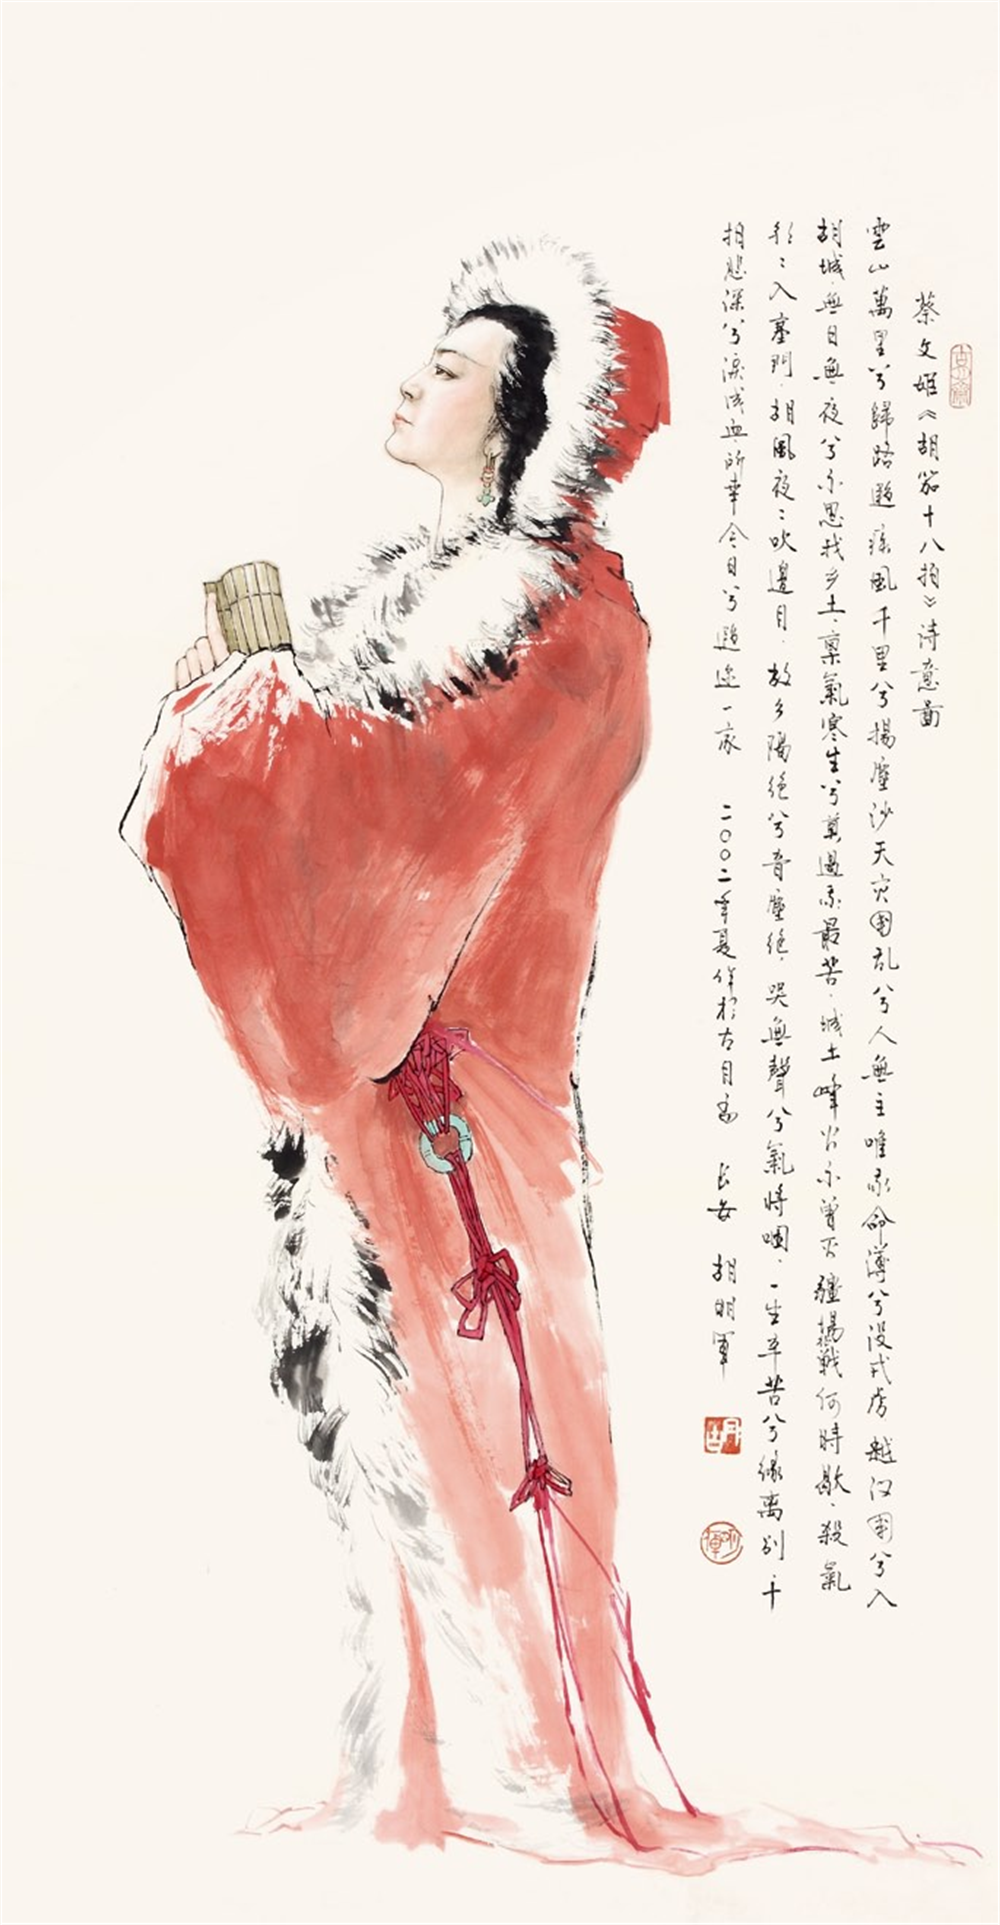 蔡文姬《胡笳十八拍》诗意啚
雲山萬里兮歸路遐疾風千里兮揚塵沙天灾國乱兮人無主唯我命薄兮没戎虏越汉國兮入
胡城.無日無夜兮不思我乡土.禀氣寒生兮莫過我最苦.城土峰火不曾灭疆場戰何時歇.殺氣
朝々入塞門.胡風夜々吹邊月.故乡隔绝兮音塵绝.哭無聲兮氣將咽.一生辛苦兮缘离别.十
拍悲深兮淚成血.所幸今日兮遐迩一家 二〇〇二年夏作於古月斋 长安 胡明軍